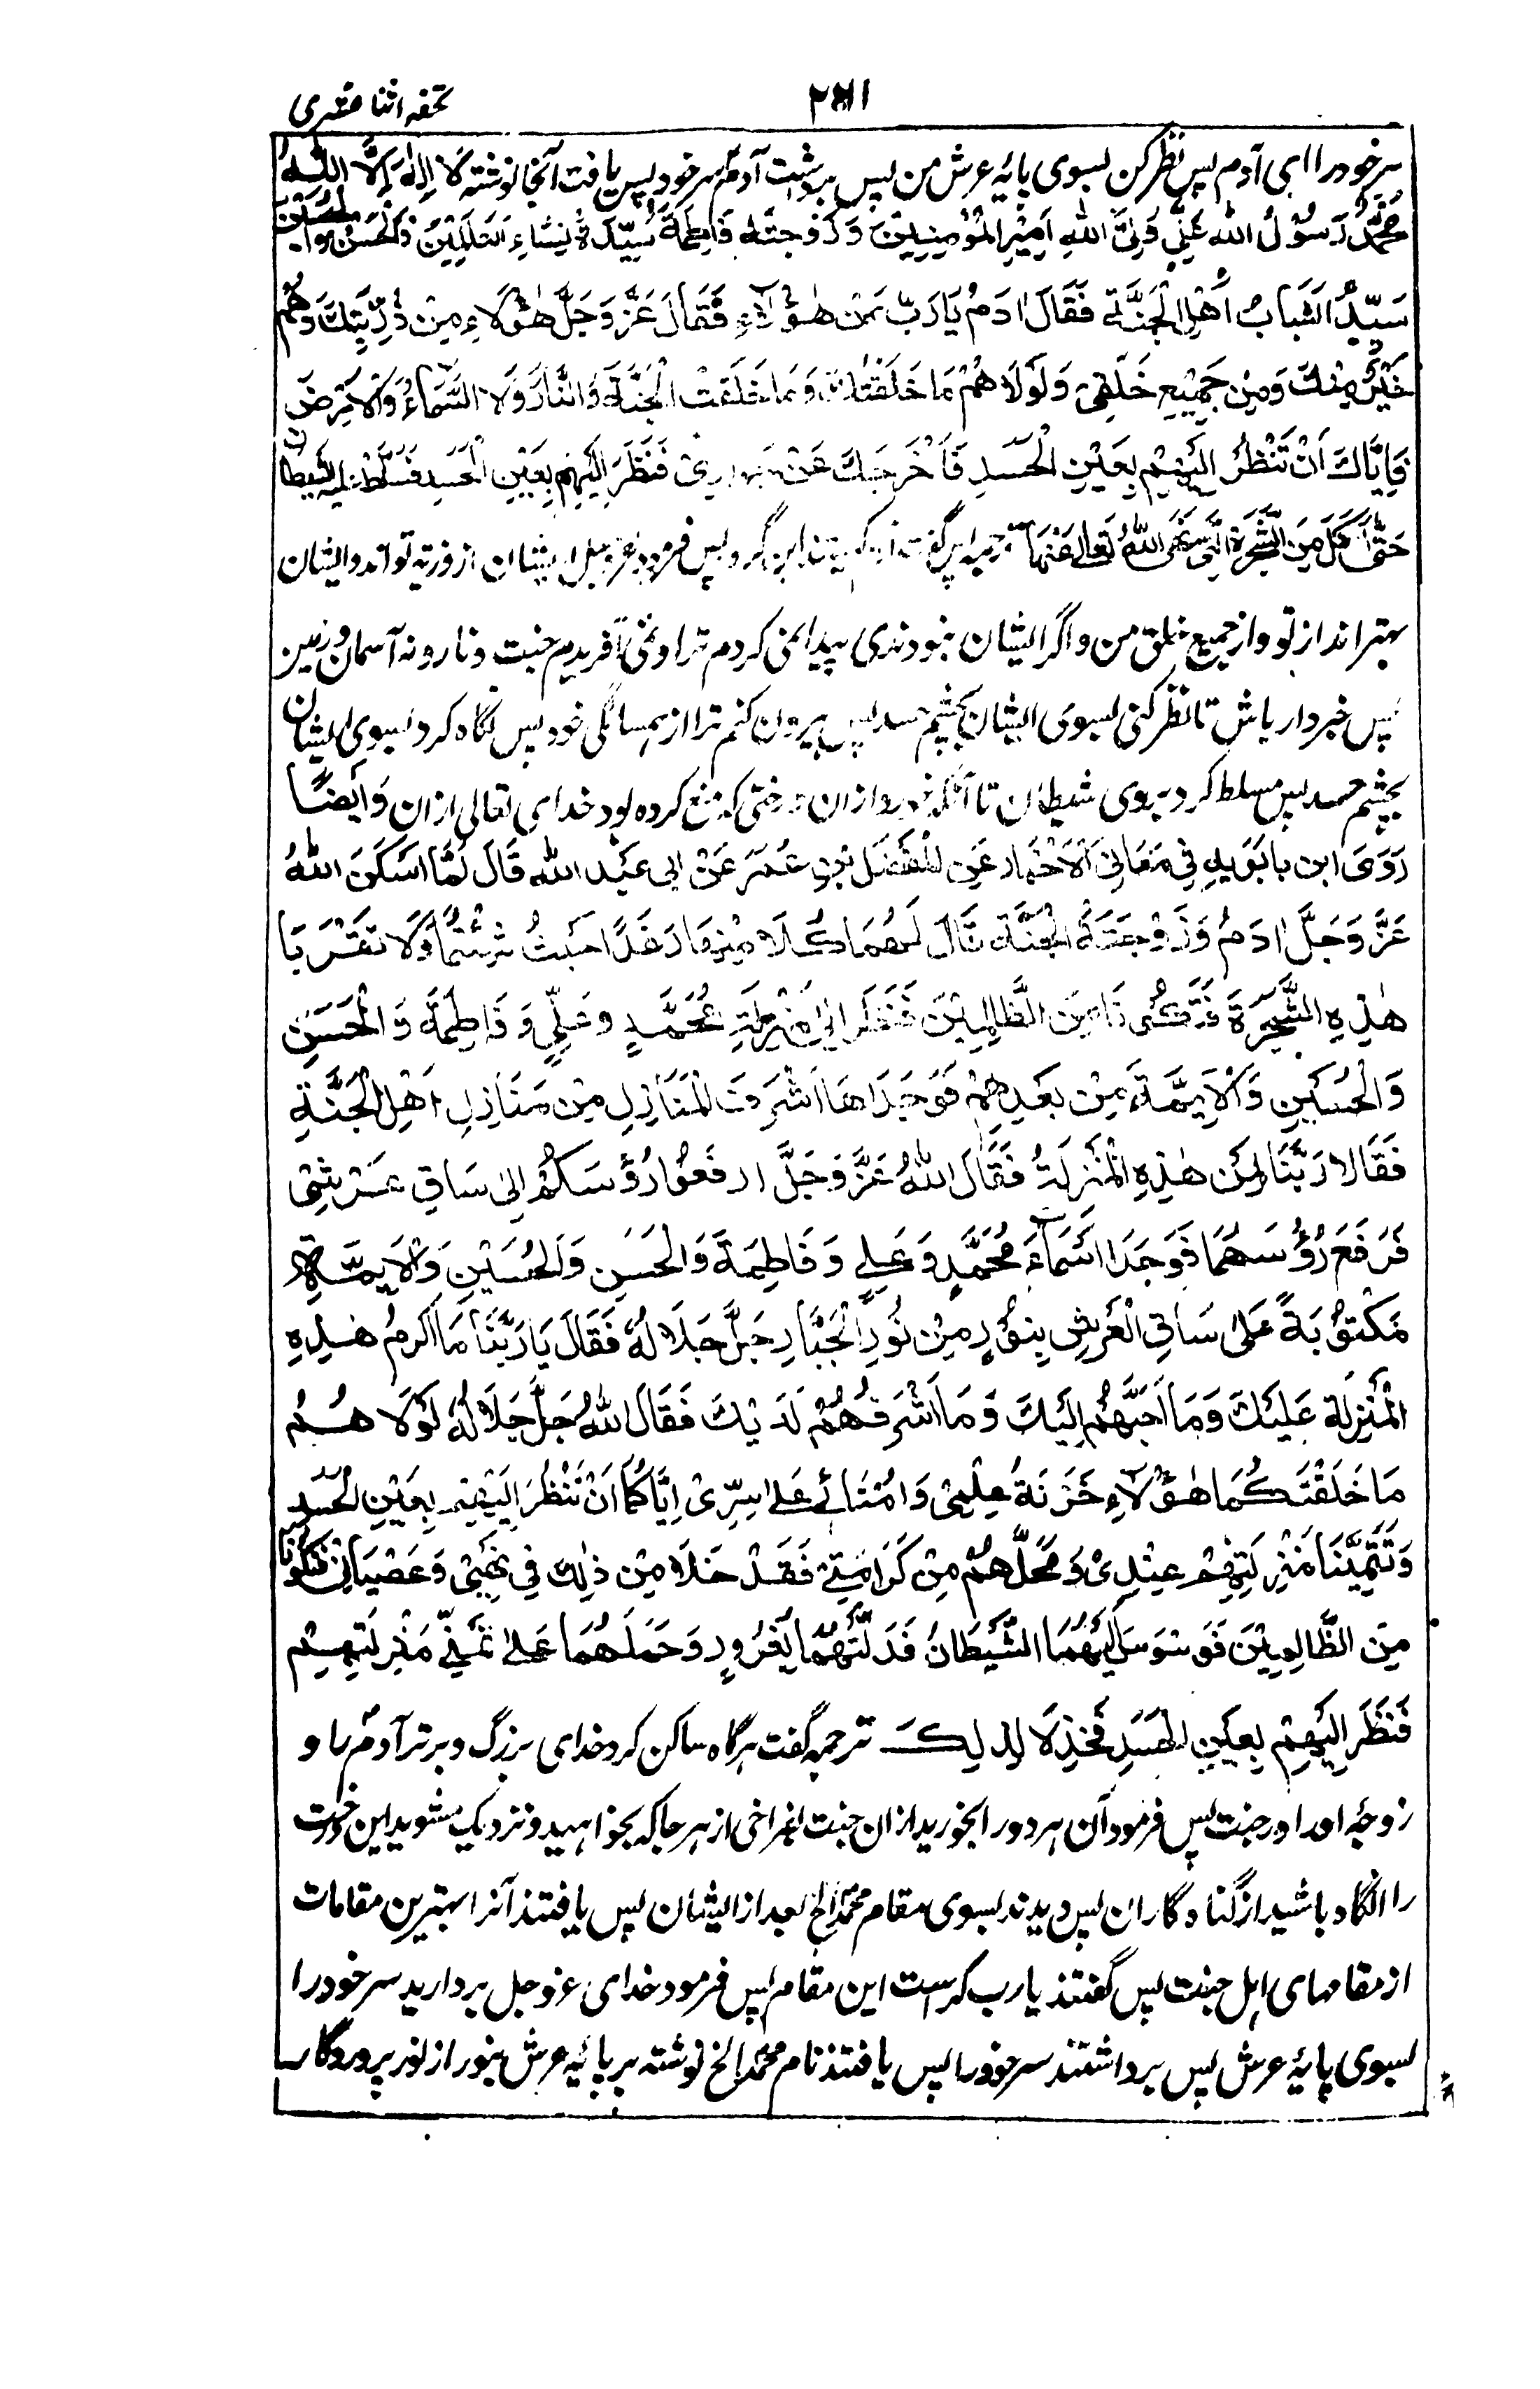 تحفہ اثنا عشری
۲۸۱
سر خود را ای آدم پس نظر کن بسوی پایهٔ عرش من پس برداشت آدم سر خود پس یافت آنجا نوشته لَا اِلٰهَ اِلَّا اللّٰهُ
مُحَمَّدٌ رَسُوْلُ اللّٰهِ عَلِیٌّ وَلِیُّ اللّٰهِ اَمِیْرُ الْمُؤْمِنِیْنَ وَ زَوْجَتُهٗ فَاطِمَةُ سَیِّدَةُ نِسَاءِ الْعَالَمِیْنَ وَ الْحَسَنُ وَ الْحُسَیْنُ
سَیِّدَا شَبَابِ اَهْلِ الْجَنَّةِ فَقَالَ اٰدَمُ یَا رَبِّ مَنْ هٰؤُلَاءِ فَقَالَ عَزَّ وَجَلَّ هٰؤُلَاءِ مِنْ ذُرِّیَّتِكَ وَهُمْ
خَیْرٌ مِنْكَ وَمِنْ جَمِیْعِ خَلْقِیْ وَلَوْلَا هُمْ مَا خَلَقْتُكَ وَمَا خَلَقْتُ الْجَنَّةَ وَالنَّارَ وَلَا السَّمَاءَ وَالْاَرْضَ
فَاِیَّاكَ اَنْ تَنْظُرَ اِلَیْهِمْ بِعَیْنِ الْحَسَدِ فَاُخْرِجَكَ عَنْ جِوَارِیْ فَنَظَرَ اِلَیْهِمْ بِعَیْنِ الْحَسَدِ فَسُلِّطَ عَلَیْهِ الشَّیْطَانُ
حَتّٰی اَكَلَ مِنَ الشَّجَرَةِ الَّتِیْ نَهَی اللّٰهُ تَعَالٰی عَنْهَا ترجمہ پس گفت آدم کیستند این گروه پس فرمود عزوجل ایشان از ذریه تو اند و ایشان
بهتر اند از تو و از جمیع خلق من و اگر ایشان نبودندی پیدا نمی کردم ترا و نمی آفریدم جنت و نار و نه آسمان و زمین
پس خبردار باش تا نظر کنی بسوی ایشان بچشم حسد پس بیرون کنم ترا از همسایگی خود پس نگاه کرد بسوی ایشان
بچشم حسد پس مسلط کرد بر وی شیطان تا آنکه خورد از ان درختی که منع کرده بود خدای تعالی ازان وَ اَیْضًا
رَوَیَ ابن بابَوَیهِ فِی مَعَانِی الْاَخْبَار عَنِ الْمُفَضَّلِ بْنِ عُمَرَ عَنْ ابی عَبْدِ اللّٰه قَالَ لَمَّا اَسْكَنَ اللّٰهُ
عَزَّ وَجَلَّ اٰدَمَ وَ زَوْجَتَهُ الْجَنَّةَ قَالَ لَهُمَا كُلَا مِنْهَا رَغَدًا حَیْثُ شِئْتُمَا وَلَا تَقْرَبَا
هٰذِهِ الشَّجَرَةَ فَتَكُوْنَا مِنَ الظَّالِمِیْنَ فَنَظَرَا اِلٰی مَنْزِلَةِ مُحَمَّدٍ وَ عَلِیٍّ وَ فَاطِمَةَ وَ الْحَسَنِ
وَ الْحُسَیْنِ وَ الْاَئِمَّةِ مِنْ بَعْدِهِمْ فَوَجَدَاهَا اَشْرَفَ الْمَنَازِلِ مِنْ مَنَازِلِ اَهْلِ الْجَنَّةِ
فَقَالَا رَبَّنَا لِمَنْ هٰذِهِ الْمَنْزِلَةُ فَقَالَ اللّٰهُ عَزَّ وَجَلَّ ارفَعُوْا رُؤُسَكُمْ اِلٰی سَاقِ عَرْشِیْ
فَرَفَعَ رُؤُسَهُمَا فَوَجَدَا اَسْمَاءَ مُحَمَّدٍ وَ عَلِیٍّ وَ فَاطِمَةَ وَ الْحَسَنِ وَ الْحُسَیْنِ وَ الْاَئِمَّةِ
مَكْتُوْبَةً عَلٰی سَاقِ الْعَرْشِ بِنُوْرٍ مِنْ نُوْرِ الْجَبَّارِ جَلَّ جَلَالُهٗ فَقَالَ یَا رَبَّنَا مَا اَكْرَمَ هٰذِهِ
الْمَنْزِلَةَ عَلَیْكَ وَ مَا اَحَبَّهُمْ اِلَیْكَ وَ مَا اَشْرَفَهُمْ لَدَیْكَ فَقَالَ اللّٰهُ جَلَّ جَلَالُهٗ لَوْلَا هُمْ
مَا خَلَقْتُكُمَا هٰؤُلَاءِ خَزَنَةُ عِلْمِیْ وَ اُمَنَائِیْ عَلٰی سِرِّیْ اِیَّاكُمَا اَنْ تَنْظُرَ اِلَیْهِمْ بِعَیْنِ الْحَسَدِ
وَ تَتَمَنَّیَا مَنْزِلَتَهُمْ عِنْدِیْ وَ مَحَلَّهُمْ مِنْ كَرَامَتِیْ فَقَدْ خَلَا مِنْ ذٰلِكَ فِی نَهْیِیْ وَ عِصْیَانِیْ فَتَكُوْنَا
مِنَ الظَّالِمِیْنَ فَوَسْوَسَ اِلَیْهِمَا الشَّیْطَانُ فَدَلّٰهُمَا بِغُرُوْرٍ وَ حَمَلَهُمَا عَلٰی تَمَنِّیْ مَنْزِلَتِهِمْ
فَنَظَرَ اِلَیْهِمْ بِعَیْنِ الْحَسَدِ فَخُذِلَا لِذٰلِكَ ترجمہ گفت هرگاه ساکن کرد خدای بزرگ و برتر آدم را و
زوجهٔ او را در جنت پس فرمود آن هر دو را بخورید ازان جنت بفراخی از هر جا که بخواهید و نزدیک مشوید این درخت
را آنگاه باشید از گناهگاران پس دیدند بسوی مقام محمد الخ بعد از ایشان پس یافتند آنرا بهترین مقامات
از مقامهای اهل جنت پس گفتند یا رب کراست این مقام پس فرمود خدای عزوجل بردارید سر خود را
بسوی پایهٔ عرش پس برداشتند سر خود را پس یافتند نام محمد الخ نوشته بر پایهٔ عرش بنور از نور پروردگار